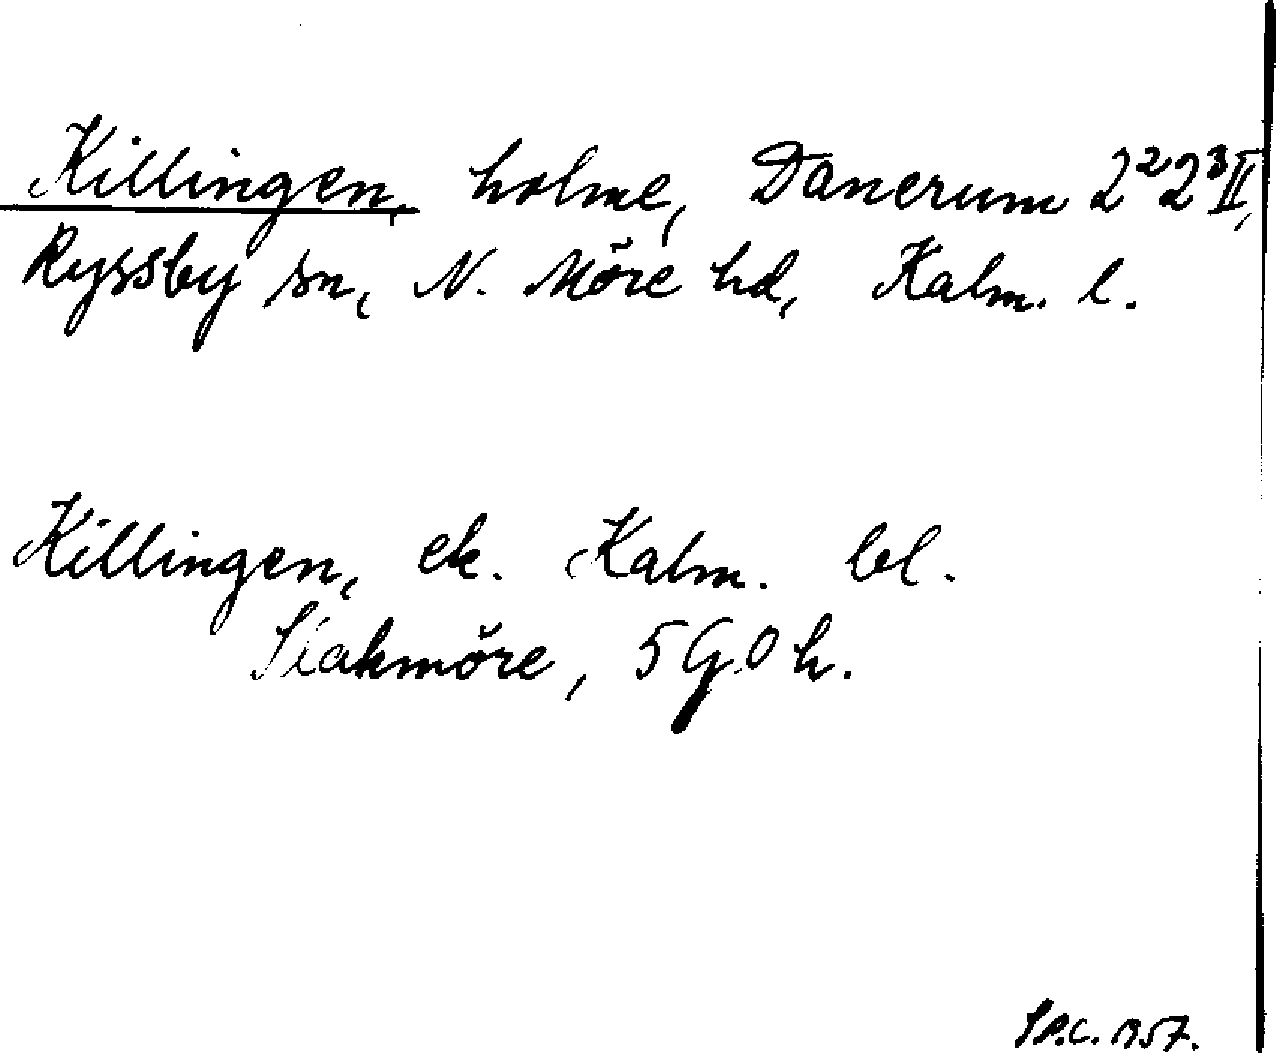 Killingen, holme, Danerum 2²2³II,
Ryssby sn, N. Möre hd, Kalm. l.
Killingen, ek. Kalm. bl.
Slakmöre, 5 G 0 h.
1957.